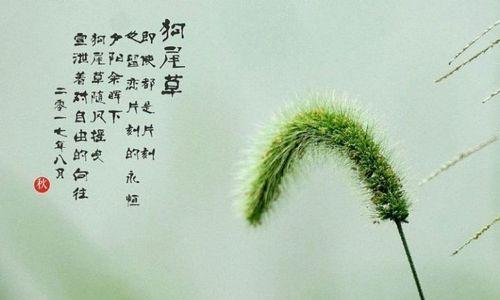 狗尾草
即使都是片刻
也留恋片刻的永恒
夕阳余晖下
狗尾草随风摇曳
宣泄着对自由的向往
二零一七年八月
秋